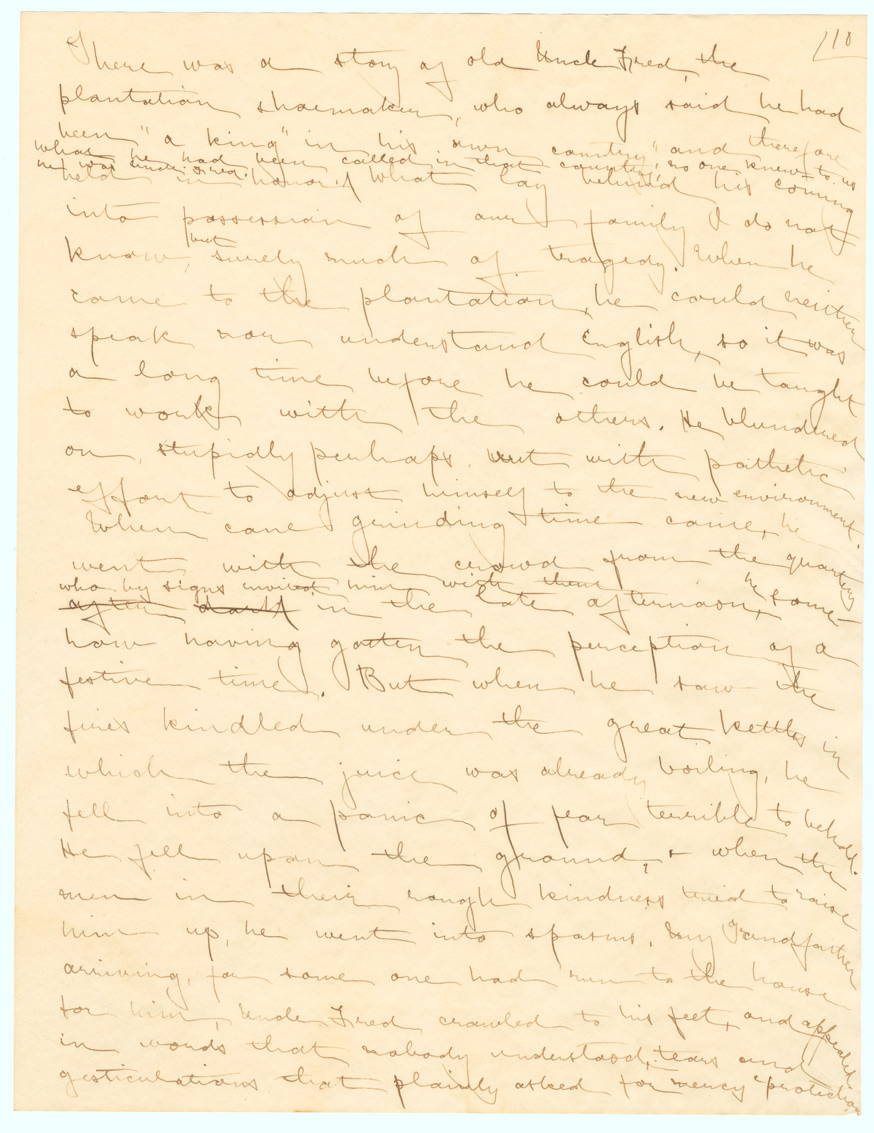 110
There was a story of old Uncle Fred, the
plantation shoemaker, who always said he had
been "a king" in his own country" and therefore
what he had been called in that country, no one knew - to us
he was Uncle Fred.
held in honor. What lay behind his coming
into possession of our family I do not
know, but surely much of tragedy. When he
came to the plantation, he could neither
speak nor understand English, so it was
a long time before he could be taught
to work with the others. He blundered
on, stupidly perhaps, but with pathetic
effort to adjust himself to the new environment.
When cane grinding time came, he
went with the crowd from the quarters
who by signs invited him with them
after dark in the late afternoon, he some-
how having gotten the perception of a
festive time. But when he saw the
fires kindled under the great kettles in
which the juice was already boiling, he
fell into a panic of fear terrible to behold.
He fell upon the ground, & when the
men in their rough kindness tried to raise
him up, he went into spasms. My Grandfather
arriving, for some one had run to the house
for him, Uncle Fred crawled to his feet, and appealed
in words that nobody understood, tears and
gesticulations that plainly asked for mercy & protection